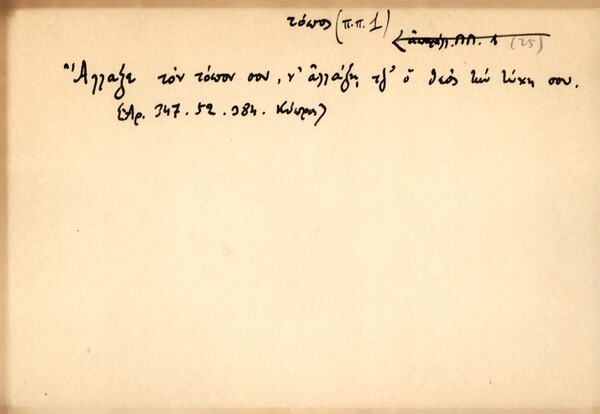 τόπος (π.π. 1)
Π.Π. 1 (25)
Ἄλλαξε τὸν τόπον σου, ν' ἀλλάξῃ τζ' ὁ θεὸς τὴν τύχη σου.
(Ἀρ. 347. 52. 384. Κύπρος)